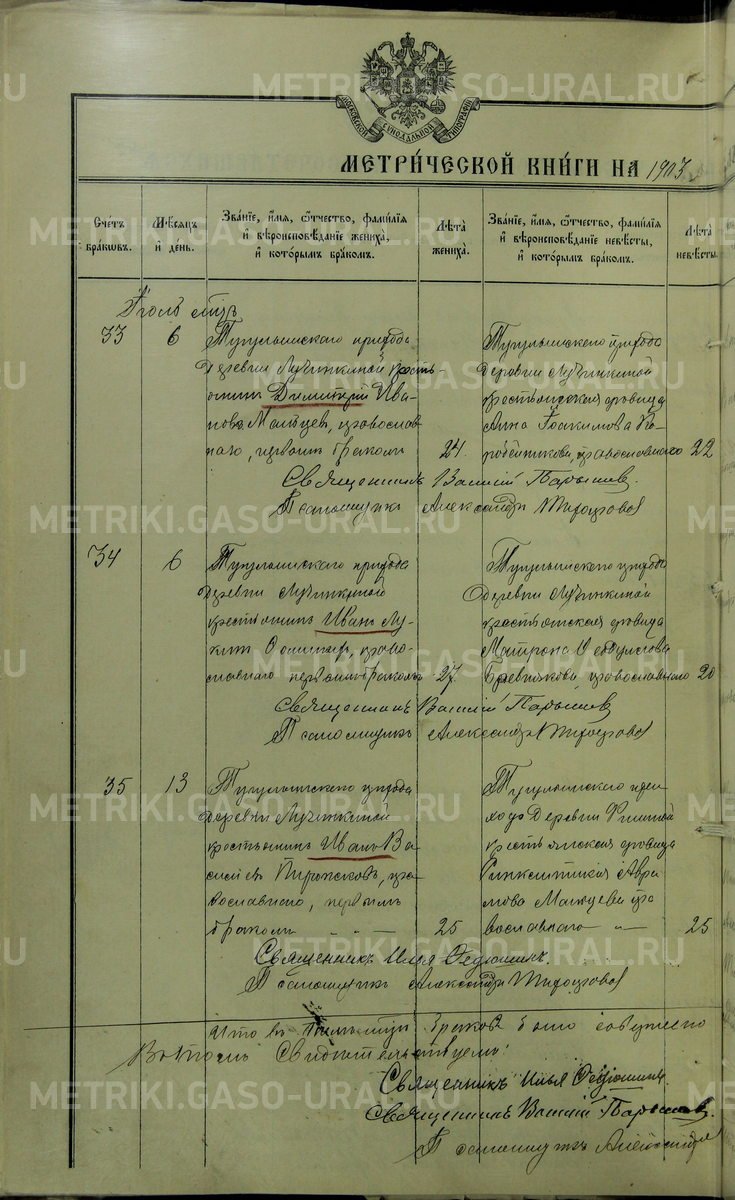 МОСКОВСКОЙ СѴНОДАЛЬНОЙ ТИПОГРАФІИ
МЕТРИ́ЧЕСКОЙ КНИ́ГИ НА 1903
Сче́тъ бра́кѡвъ.
Мѣ́сѧцъ и҆ де́нь.
Зва́нїе, и҆́мѧ, ѻ҆́тчество, фами́лїѧ и҆ вѣроисповѣ́данїе жениха̀, и҆ кото́рымъ бра́комъ.
Лѣ́та жениха̀.
Зва́нїе, и҆́мѧ, ѻ҆́тчество, фами́лїѧ и҆ вѣроисповѣ́данїе невѣ́сты, и҆ кото́рымъ бра́комъ.
Лѣ́та невѣ́сты.
Іюль
33 6
Тугулымскаго прихода
деревни Лучинкиной кресть-
янинъ Димитрій Ива-
новъ Мальцевъ, православ-
наго, первымъ бракомъ 24.
Тугулымскаго прихода
деревни Лучинкиной
крестьянская дѣвица
Анна Іоакимова Ко-
робейникова, православнаго 22
Священникъ Василій Парышев.
Псаломщикъ Александръ
34 6
Тугулымскаго прихода
деревни Лучинкиной
крестьянинъ Иванъ Лу-
кинъ, право-
славнаго первымъ бракомъ 27.
Тугулымскаго прихода
деревни Лучинкиной
крестьянская дѣвица
Матрона
православнаго 20
Священникъ Василій Парышев
Псаломщикъ Александръ
35 13
Тугулымскаго прихода
деревни Лучинкиной
крестьянинъ Иванъ Ва-
сильевъ, пра-
вославнаго, первымъ
бракомъ - - - 25
Тугулымскаго при-
хода деревни
крестьянская дѣвица
Синклитикія Авра-
мова Мальцева пра-
вославнаго - 25
Священникъ Илья Федюшинъ.
Псаломщикъ Александръ
Что въ браковъ было совершено
въ томъ Свидѣтельствуемъ:
Священникъ Илья Федюшинъ.
Священникъ Василій Парышев.
Псаломщикъ Александръ
METRIKI.GASO-URAL.RU